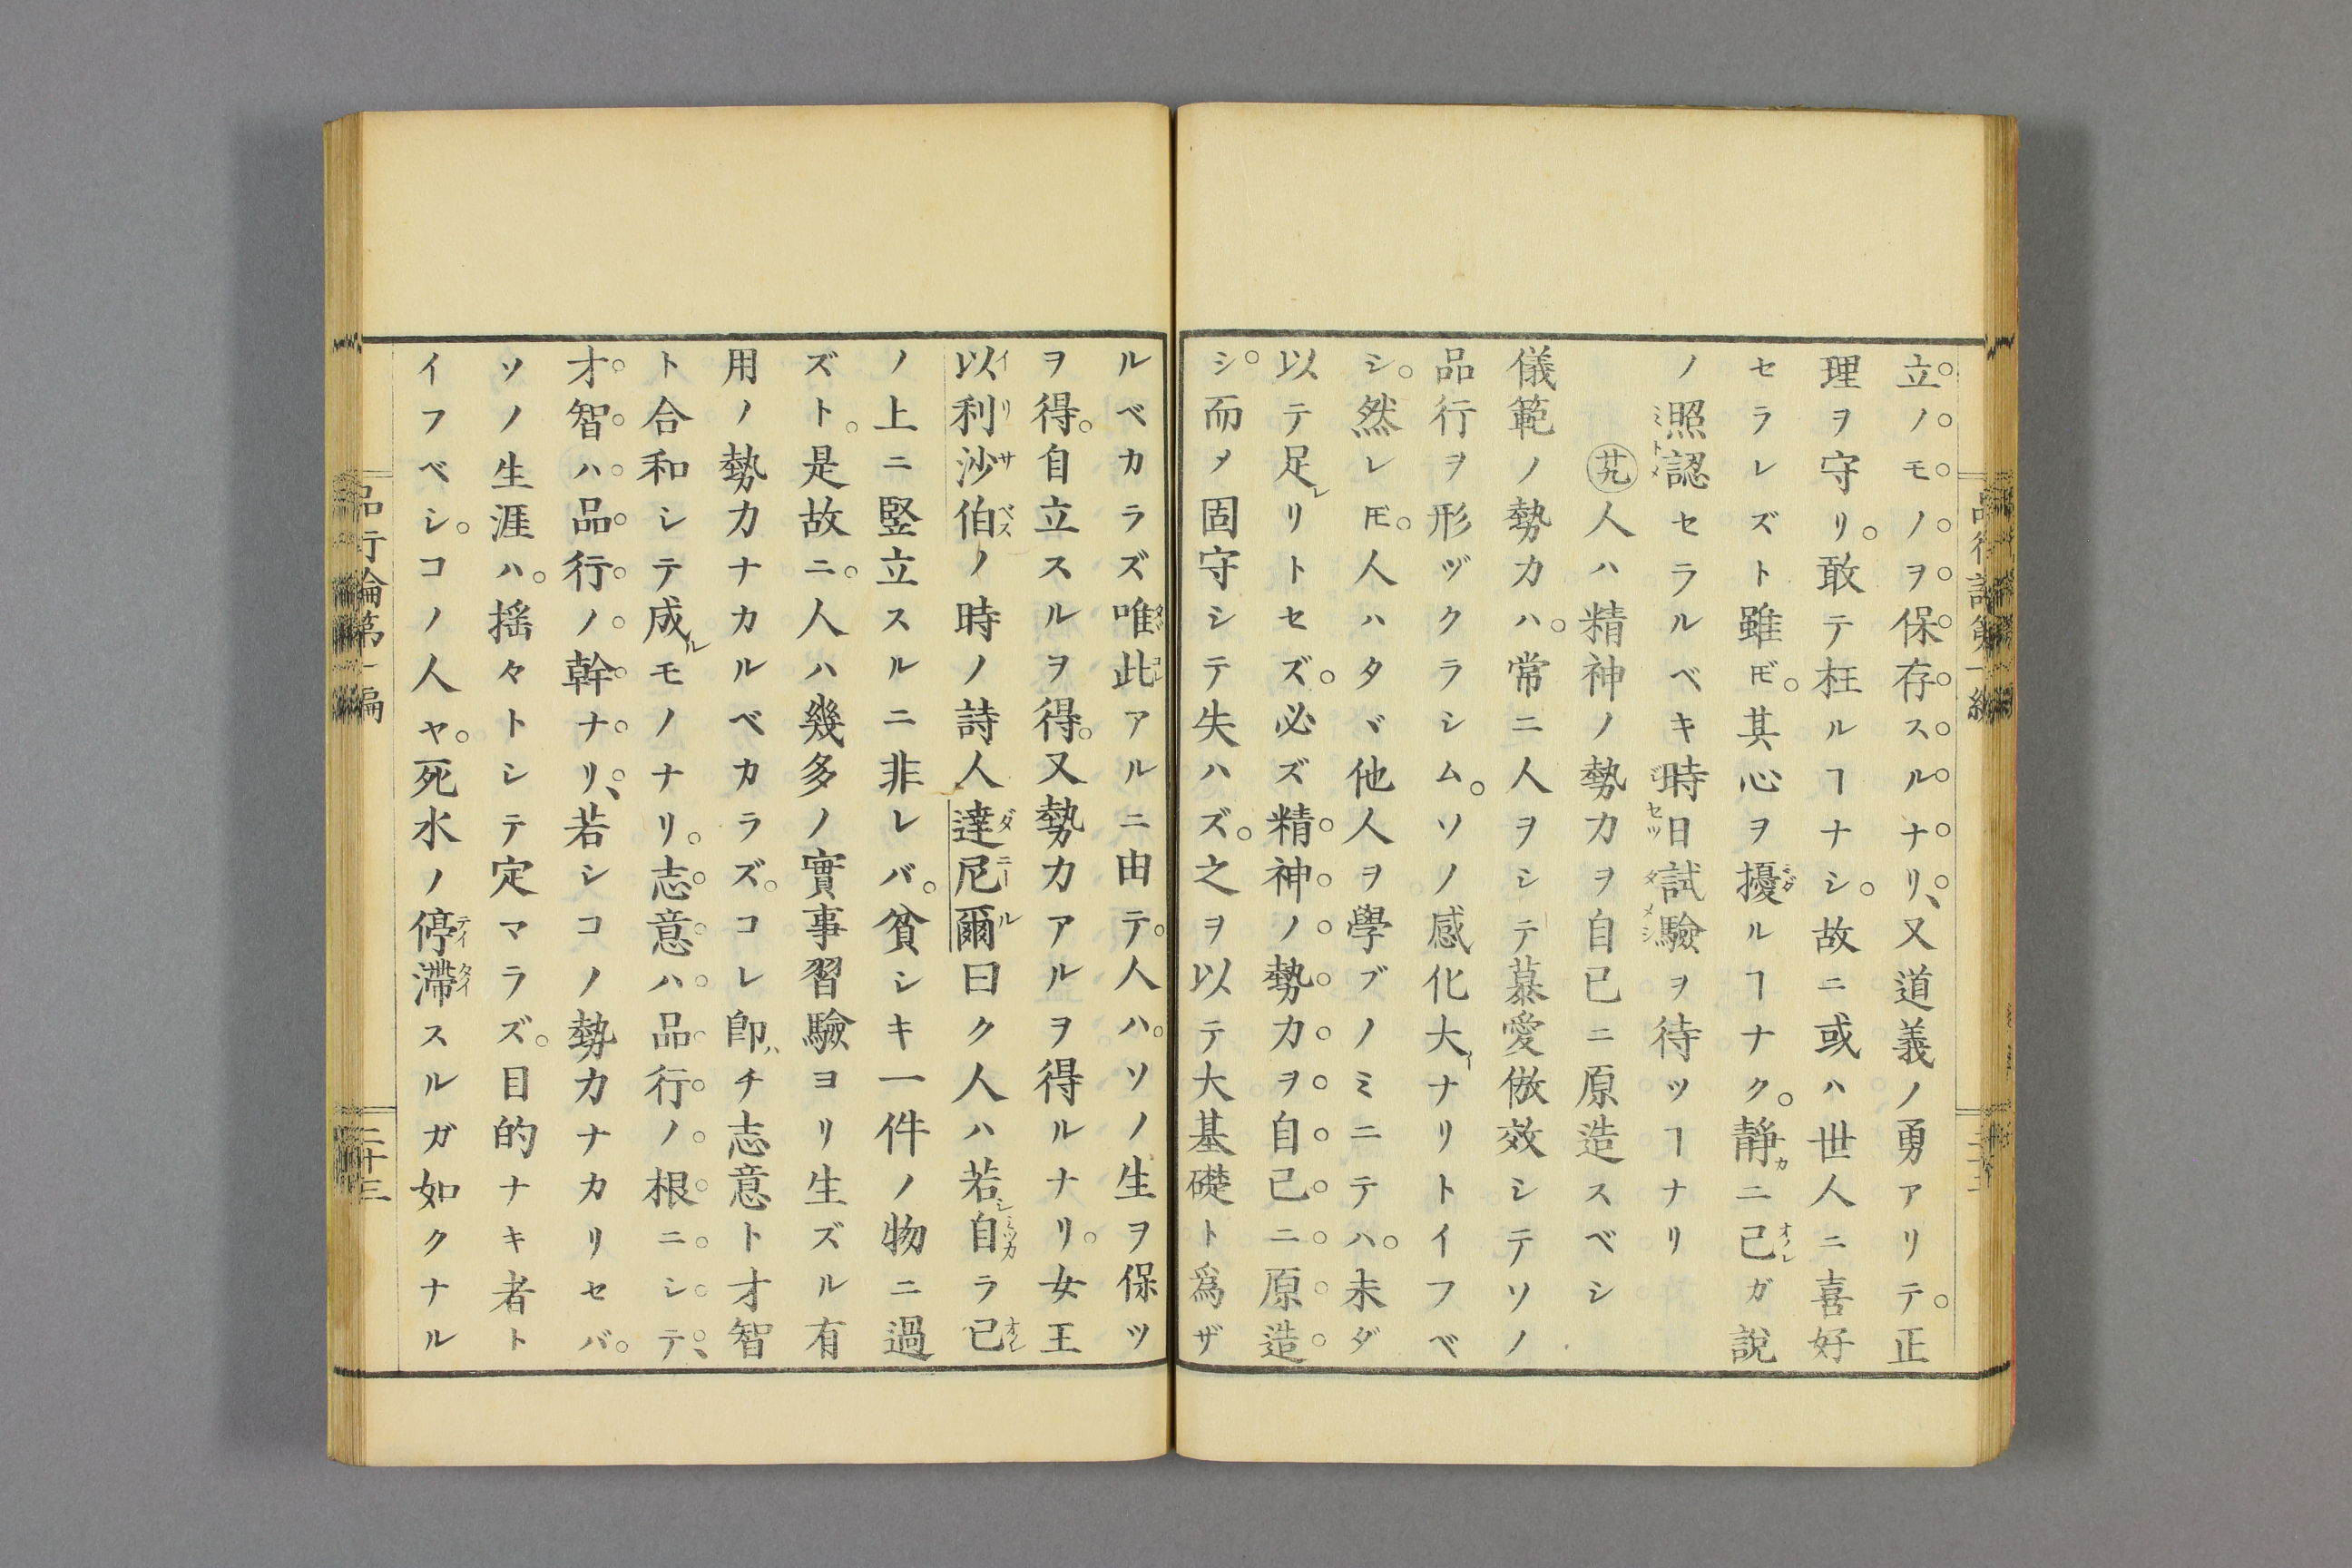 立ノモノヲ保存スルナリ、又道義ノ勇アリテ。正
理ヲ守リ。敢テ枉ルヿナシ。故ニ或ハ世人ニ喜好
セラレズト雖𪜈。其心ヲ擾ルヿナク。静カニ己ガ說
ノ照認セラルベキ時日試驗ヲ待ツヿナリ
㊈人ハ精神ノ勢力ヲ自己ニ原造スベシ
儀範ノ勢力ハ。常ニ人ヲシテ慕愛倣效シテソノ
品行ヲ形ヅクラシム。ソノ感化大イナリトイフベ
シ。然レ𪜈。人ハタヾ他人ヲ學ブノミニテハ。未ダ
以テ足レリトセズ。必ズ精神ノ勢力ヲ自己ニ原造
シ。而メ固守シテ失ハズ。之ヲ以テ大基礎ト爲ザ
ルベカラズ唯此アルニ由テ。人ハ。ソノ生ヲ保ツ
ヲ得。自立スルヲ得。又勢力アルヲ得ルナリ。女王
以利沙伯ノ時ノ詩人達尼爾曰ク人ハ若シ自ラ己
ノ上ニ竪立スルニ非レバ。貧シキ一件ノ物ニ過
ズト。是故ニ。人ハ幾多ノ實事習驗ヨリ生ズル有
用ノ勢力ナカルベカラズ。コレ卽ハチ志意ト才智
ト合和シテ成ルモノナリ。志意ハ品行ノ根ニシテ、
才智ハ品行ノ幹ナリ、若シコノ勢力ナカリセバ。
ソノ生涯ハ。揺々トシテ定マラズ。目的ナキ者ト
イフベシ。コノ人ヤ。死水ノ停滯スルガ如クナル
品行論第一編
二十三